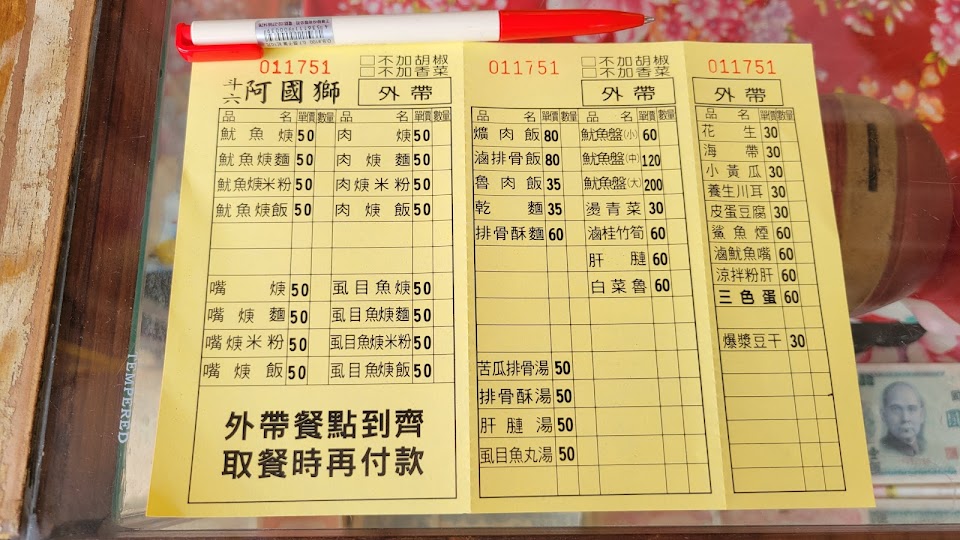 011751
□不加胡椒
□不加香菜
斗六阿國獅
外帶
品名 單價 數量 品名 單價 數量
魷魚焿 50 肉焿 50
魷魚焿麵 50 肉焿麵 50
魷魚焿米粉 50 肉焿米粉 50
魷魚焿飯 50 肉焿飯 50
嘴焿 50 虱目魚焿 50
嘴焿麵 50 虱目魚焿麵 50
嘴焿米粉 50 虱目魚焿米粉 50
嘴焿飯 50 虱目魚焿飯 50
外帶餐點到齊
取餐時再付款
011751
□不加胡椒
□不加香菜
外帶
品名 單價 數量 品名 單價 數量
爌肉飯 80 魷魚盤(小) 60
滷排骨飯 80 魷魚盤(中) 120
魯肉飯 35 魷魚盤(大) 200
乾麵 35 燙青菜 30
排骨酥麵 60 滷桂竹筍 60
肝腱 60
白菜魯 60
苦瓜排骨湯 50
排骨酥湯 50
肝腱湯 50
虱目魚丸湯 50
011751
外帶
品名 單價 數量
花生 30
海帶 30
小黃瓜 30
養生川耳 30
皮蛋豆腐 30
鯊魚煙 50
滷魷魚嘴 60
涼拌粉肝 60
三色蛋 60
爆漿豆干 30
TEMPERED